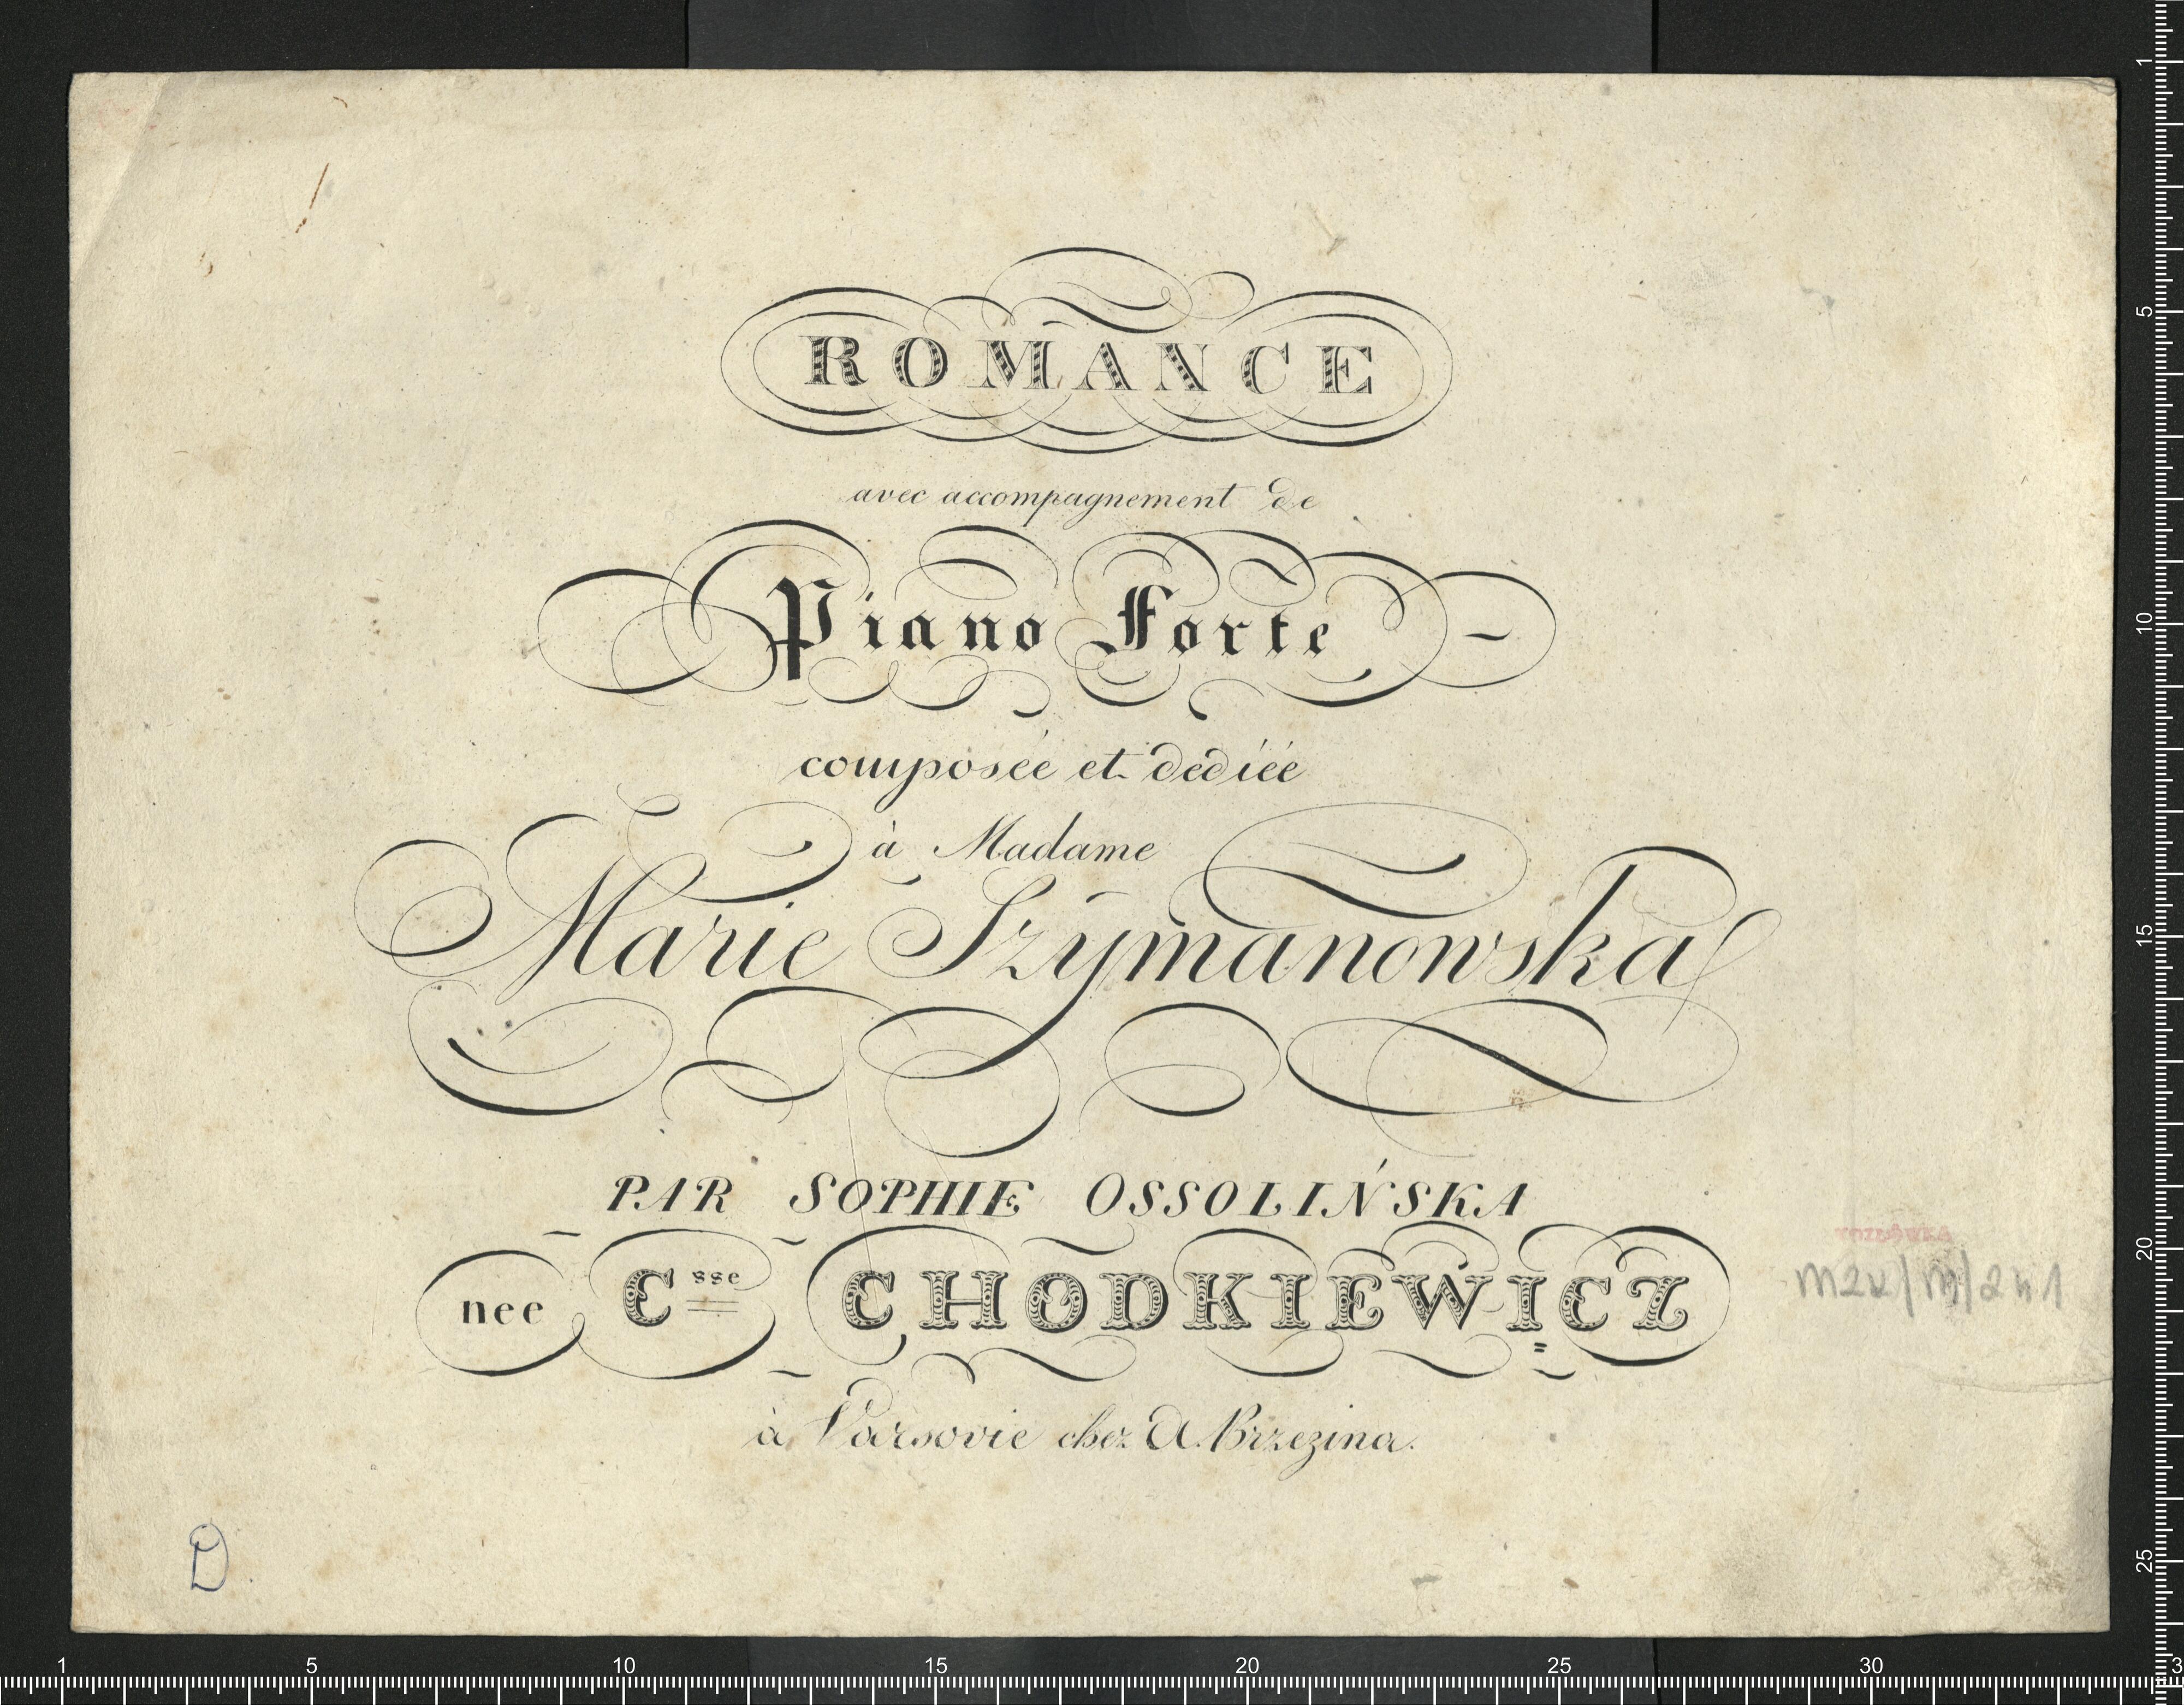 ROMANCE
avec accompagnement de
Piano Forte
composée et dediée
à Madame
Marie Szymanowska
PAR SOPHIE OSSOLIŃSKA
nee Csse CHODKIEWICZ
à Varsovie chez A. Brzezina.
D.
1 5 10 15 20 25 30
1 5 10 15 20 25